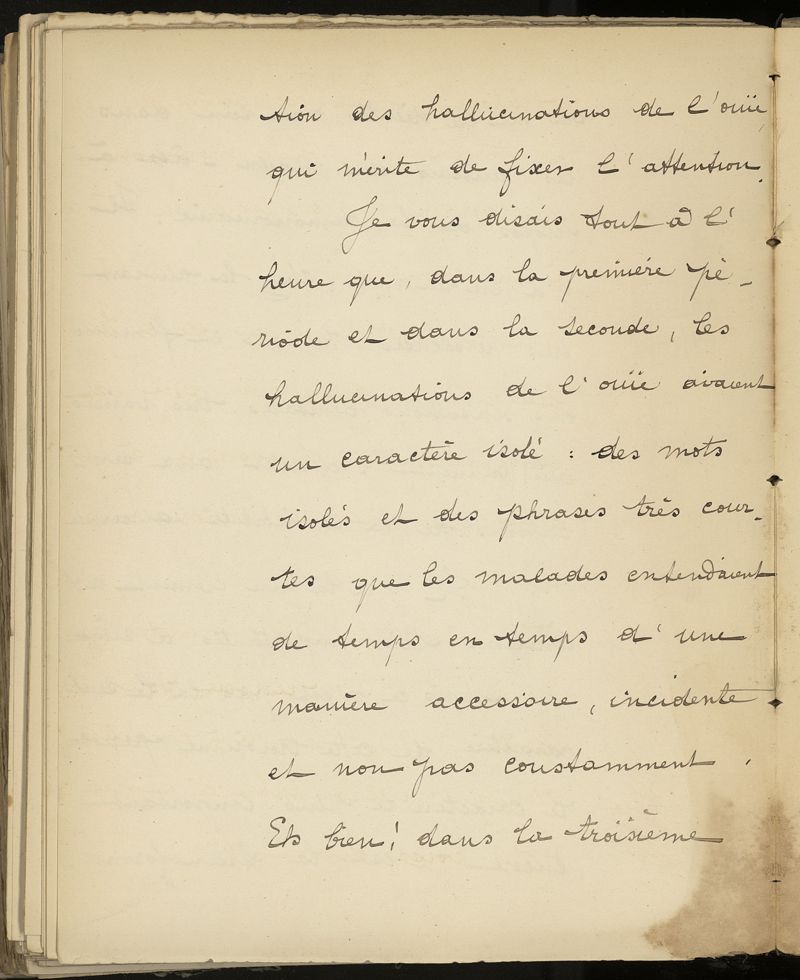 tion des hallucinations de l'ouïe,
qui mérite de fixer l'attention.
Je vous disais tout à l'
heure que, dans la première pé-
riode et dans la seconde, les
hallucinations de l'ouïe avaient
un caractère isolé : des mots
isolés et des phrases très cour-
tes que les malades entendaient
de temps en temps d'une
manière accessoire, incidente
et non pas constamment.
Eh bien! dans la troisième